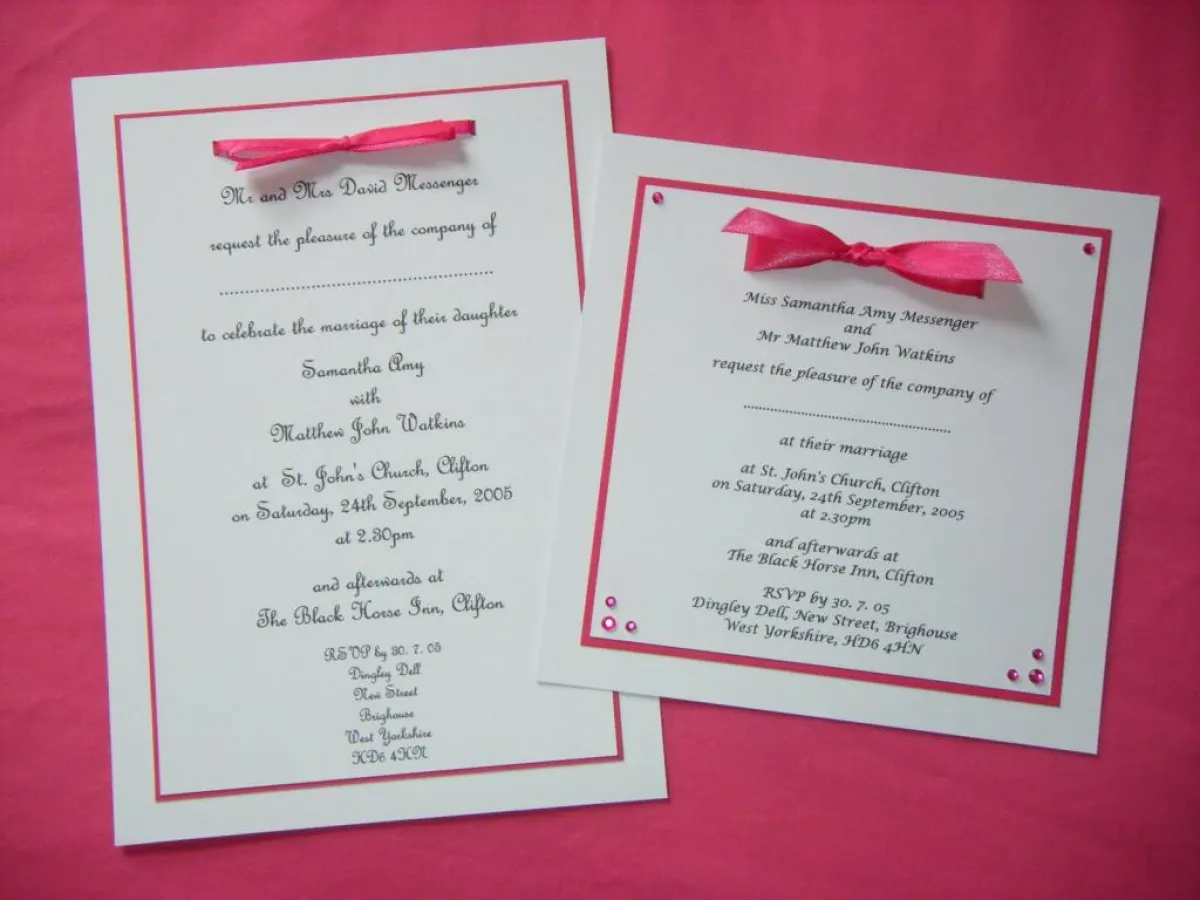 Mr and Mrs David Messenger
request the pleasure of the company of
..........................................................
to celebrate the marriage of their daughter
Samantha Amy
with
Matthew John Watkins
at St. John's Church, Clifton
on Saturday, 24th September, 2005
at 2.30pm
and afterwards at
The Black Horse Inn, Clifton
RSVP by 30. 7. 05
Dingley Dell
New Street
Brighouse
West Yorkshire
HD6 4HN
Miss Samantha Amy Messenger
and
Mr Matthew John Watkins
request the pleasure of the company of
......................................................
at their marriage
at St. John's Church, Clifton
on Saturday, 24th September, 2005
at 2.30pm
and afterwards at
The Black Horse Inn, Clifton
RSVP by 30. 7. 05
Dingley Dell, New Street, Brighouse
West Yorkshire, HD6 4HN